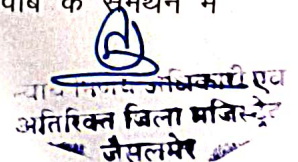 के समर्थन में
अधिकारी एवं
अतिरिक्त जिला मजिस्ट्रेट
जैसलमेर